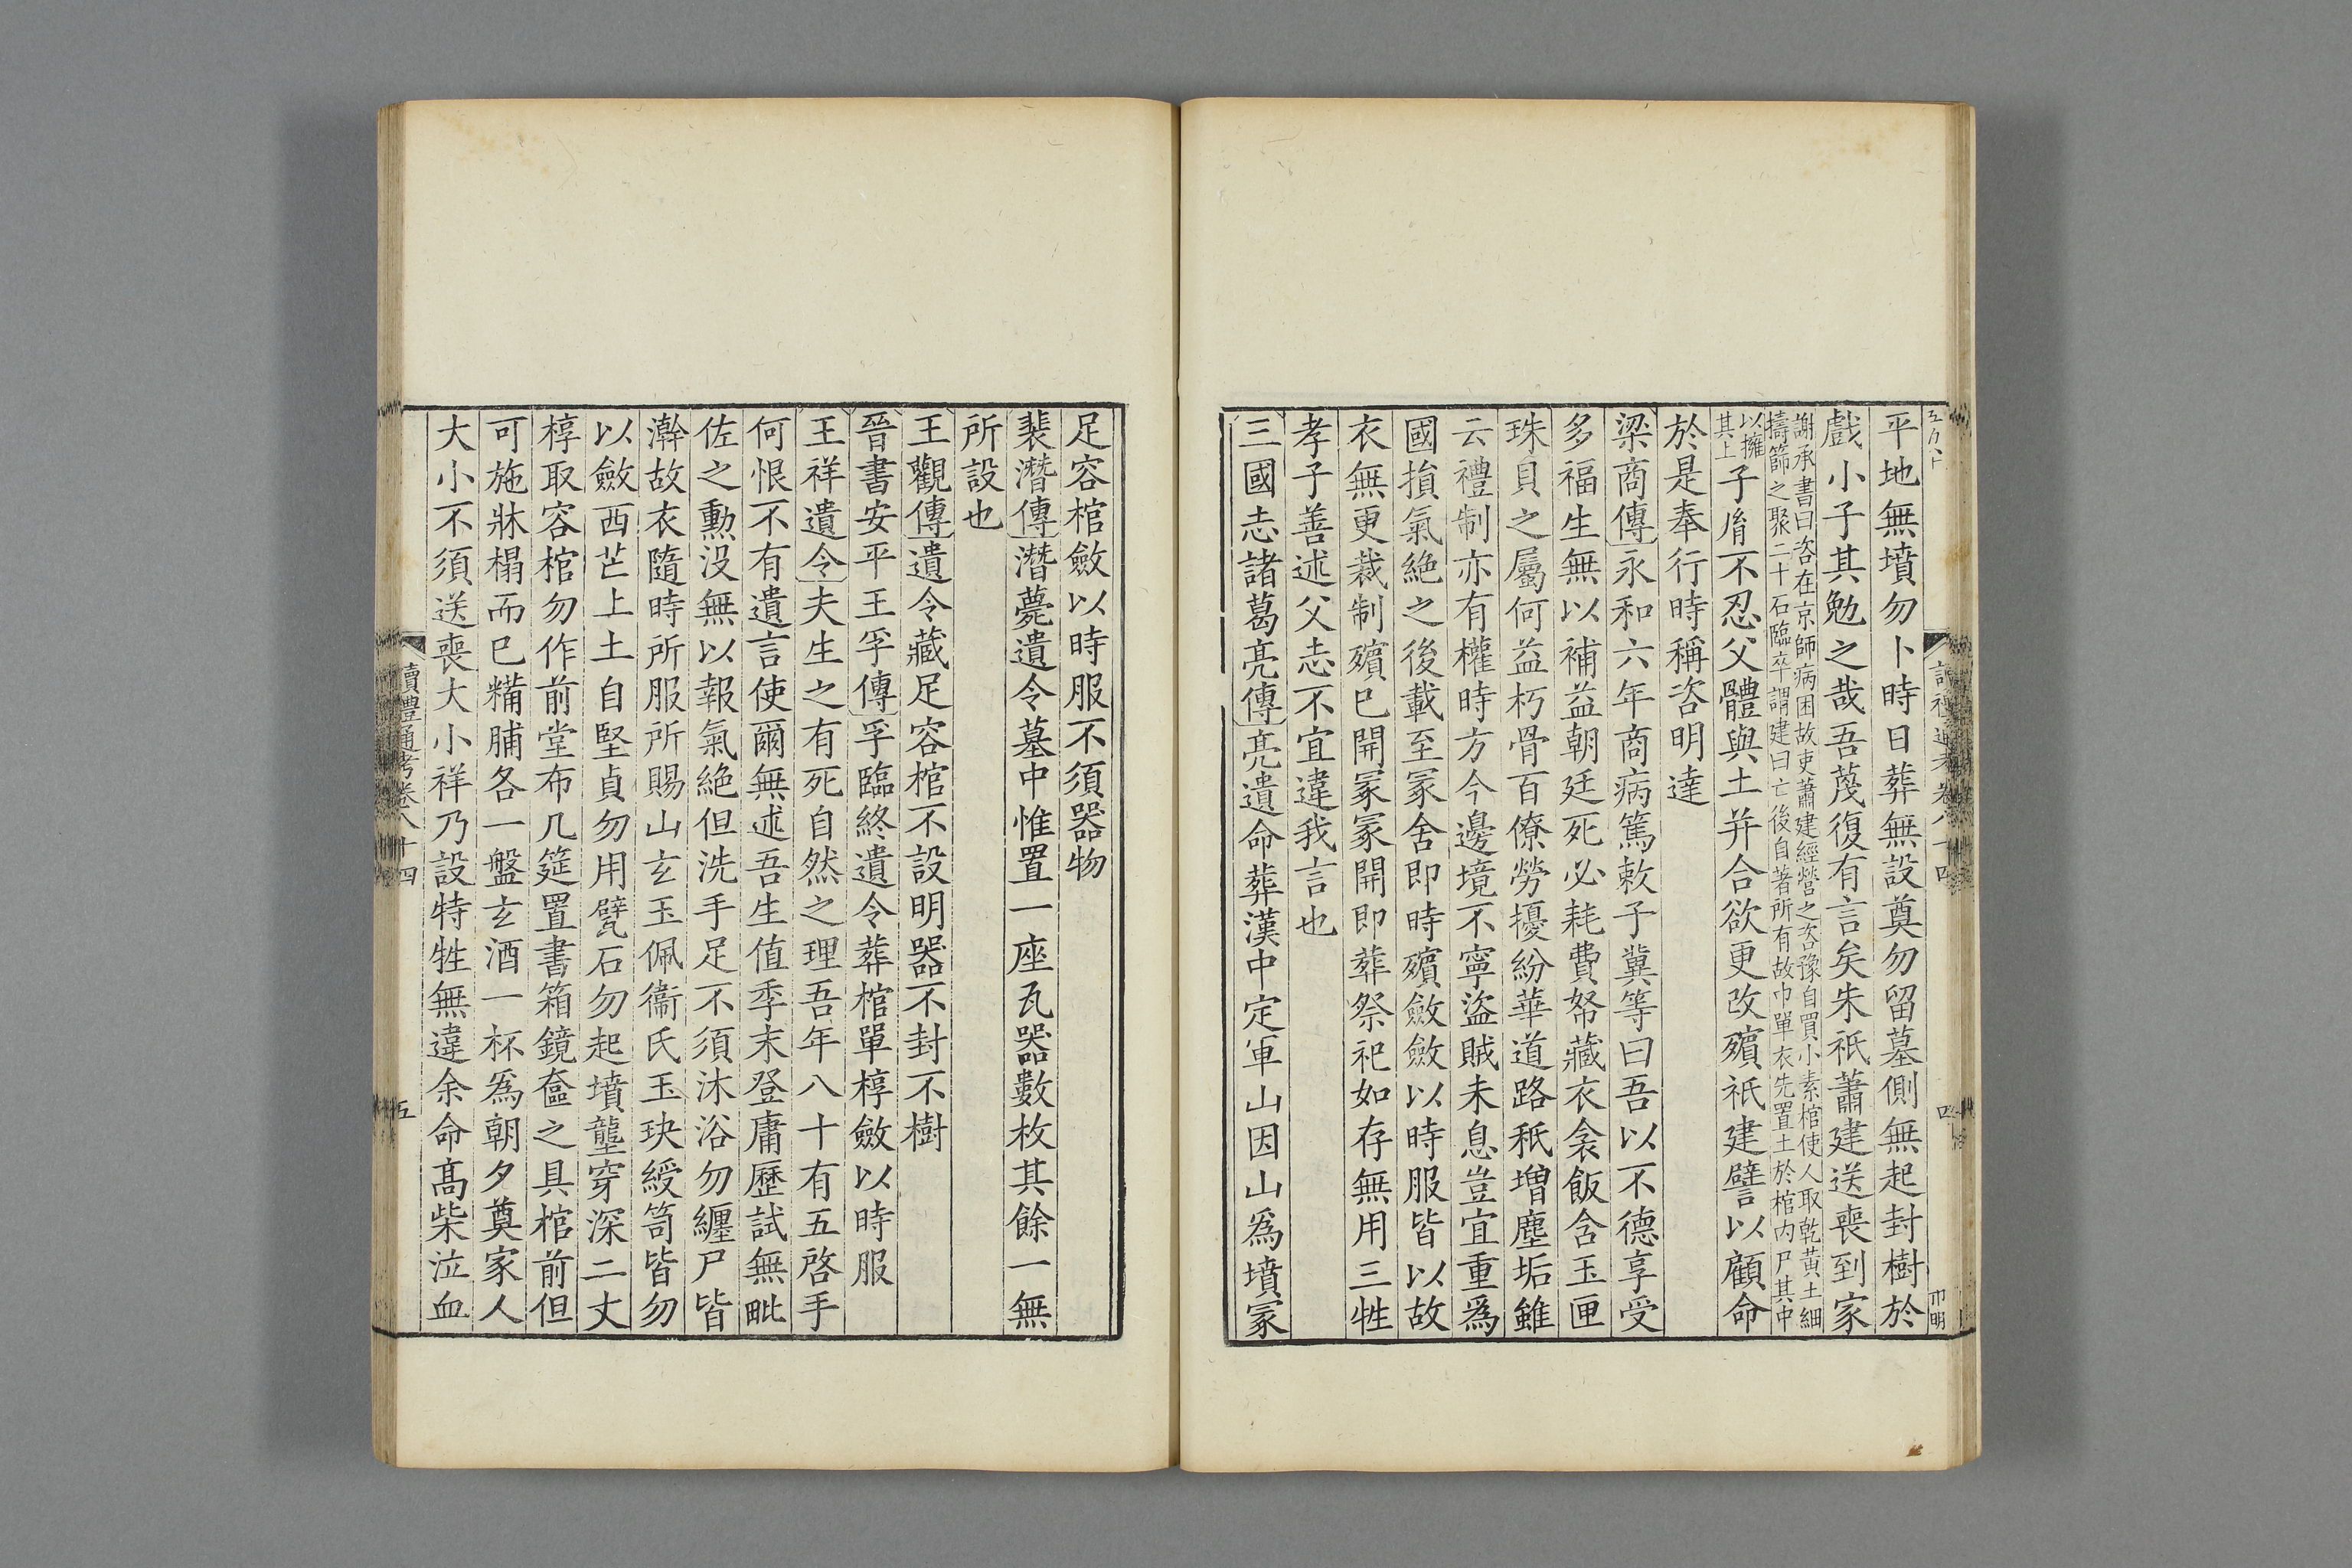 平地無墳勿卜時日葬無設奠勿留墓側無起封樹於
戲小子其勉之哉吾蔑復有言矣朱祇蕭建送喪到家
謝承書曰咨在京師病困故吏蕭建經營之咨豫自買小素棺使人取乾黃土細
擣篩之聚二十石臨卒謂建曰亡後自著所有故巾單衣先置土於棺內尸其中
以擁
其上
子胤不忍父體與土并合欲更改殯祇建譬以顧命
於是奉行時稱咨明達
梁商傳永和六年商病篤敕子冀等曰吾以不德享受
多福生無以補益朝廷死必耗費帑藏衣衾飯含玉匣
珠貝之屬何益朽骨百僚勞擾紛華道路秖增塵垢雖
云禮制亦有權時方今邊境不寧盜賊未息豈宜重爲
國損氣絶之後載至冢舍即時殯斂斂以時服皆以故
衣無更裁制殯已開冢冢開即葬祭祀如存無用三牲
孝子善述父志不宜違我言也
三國志諸葛亮傳亮遺命葬漢中定軍山因山爲墳冢
足容棺斂以時服不須器物
裴潛傳潛薨遺令墓中惟置一座瓦器數枚其餘一無
所設也
王觀傳遺令藏足容棺不設明器不封不樹
晉書安平王孚傳孚臨終遺令葬棺單椁斂以時服
王祥遺令夫生之有死自然之理吾年八十有五啓手
何恨不有遺言使爾無述吾生值季末登庸歷試無毗
佐之勳没無以報氣絶但洗手足不須沐浴勿纏尸皆
澣故衣隨時所服所賜山玄玉佩衞氏玉玦綬笥皆勿
以斂西芒上土自堅貞勿用甓石勿起墳壟穿深二丈
椁取容棺勿作前堂布几筵置書箱鏡奩之具棺前但
可施牀榻而已糒脯各一盤玄酒一杯爲朝夕奠家人
大小不須送喪大小祥乃設特牲無違余命高柴泣血
讀禮通考卷八十四
五